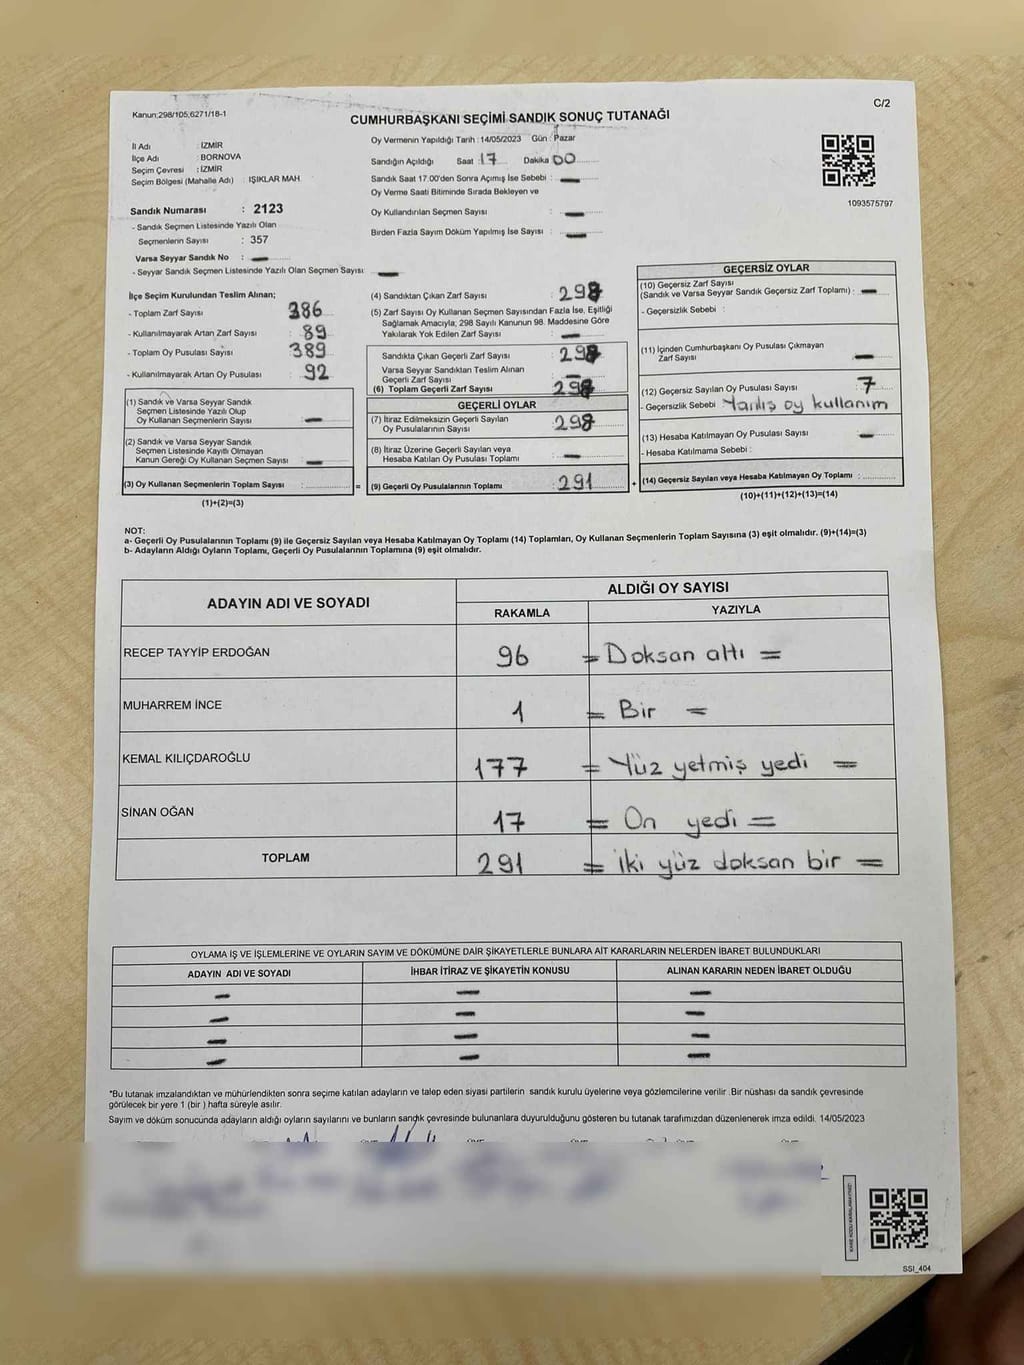 Kanun;298/105,6271/18-1
C/2
CUMHURBAŞKANI SEÇİMİ SANDIK SONUÇ TUTANAĞI
İl Adı : İZMİR
İlçe Adı : BORNOVA
Seçim Çevresi : İZMİR
Seçim Bölgesi (Mahalle Adı) : IŞIKLAR MAH.
Sandık Numarası : 2123
- Sandık Seçmen Listesinde Yazılı Olan
Seçmenlerin Sayısı : 357
Varsa Seyyar Sandık No : —
- Seyyar Sandık Seçmen Listesinde Yazılı Olan Seçmen Sayısı —
Oy Vermenin Yapıldığı Tarih :14/05/2023 Gün : Pazar
Sandığın Açıldığı Saat :17 Dakika 00
Sandık Saat 17.00'den Sonra Açımış İse Sebebi : —
Oy Verme Saati Bitiminde Sırada Bekleyen ve
Oy Kullandırılan Seçmen Sayısı : —
Birden Fazla Sayım Döküm Yapılmış İse Sayısı : —
1093575797
İlçe Seçim Kurulundan Teslim Alınan;
- Toplam Zarf Sayısı : 386
- Kullanılmayarak Artan Zarf Sayısı : 89
- Toplam Oy Pusulası Sayısı : 389
- Kullanılmayarak Artan Oy Pusulası : 92
(1) Sandık ve Varsa Seyyar Sandık
Seçmen Listesinde Yazılı Olup
Oy Kullanan Seçmen Sayısı : —
(2) Sandık ve Varsa Seyyar Sandık
Seçmen Listesinde Kayıtlı Olmayan
Kanun Gereği Oy Kullanan Seçmen Sayısı : —
(3) Oy Kullanan Seçmenlerin Toplam Sayısı :
(1)+(2)=(3)
(4) Sandıktan Çıkan Zarf Sayısı : 298
(5) Zarf Sayısı Oy Kullanan Seçmen Sayısından Fazla İse, Eşitliği
Sağlamak Amacıyla; 298 Sayılı Kanunun 98. Maddesine Göre
Yakılarak Yok Edilen Zarf Sayısı : —
Sandıkta Çıkan Geçerli Zarf Sayısı : 298
Varsa Seyyar Sandıktan Teslim Alınan
Geçerli Zarf Sayısı : —
(6) Toplam Geçerli Zarf Sayısı 298
GEÇERLİ OYLAR
(7) İtiraz Edilmeksizin Geçerli Sayılan
Oy Pusulalarının Sayısı : 298
(8) İtiraz Üzerine Geçerli Sayılan veya
Hesaba Katılan Oy Pusulası Toplamı : —
= (9) Geçerli Oy Pusulalarının Toplamı : 291
GEÇERSİZ OYLAR
(10) Geçersiz Zarf Sayısı
(Sandık ve Varsa Seyyar Sandık Geçersiz Zarf Toplamı) : —
- Geçersizlik Sebebi :
(11) İçinden Cumhurbaşkanı Oy Pusulası Çıkmayan
Zarf Sayısı : —
(12) Geçersiz Sayılan Oy Pusulası Sayısı : 7
- Geçersizlik Sebebi : Yanlış oy kullanım
(13) Hesaba Katılmayan Oy Pusulası Sayısı : —
- Hesaba Katılmama Sebebi :
+ (14) Geçersiz Sayılan veya Hesaba Katılmayan Oy Toplamı :
(10)+(11)+(12)+(13)=(14)
NOT:
a- Geçerli Oy Pusulalarının Toplamı (9) ile Geçersiz Sayılan veya Hesaba Katılmayan Oy Toplamı (14) Toplamları, Oy Kullanan Seçmenlerin Toplam Sayısına (3) eşit olmalıdır. (9)+(14)=(3)
b- Adayların Aldığı Oyların Toplamı, Geçerli Oy Pusulalarının Toplamına (9) eşit olmalıdır.
ADAYIN ADI VE SOYADI
ALDIĞI OY SAYISI
RAKAMLA YAZIYLA
RECEP TAYYİP ERDOĞAN 96 = Doksan altı =
MUHARREM İNCE 1 = Bir =
KEMAL KILIÇDAROĞLU 177 = Yüz yetmiş yedi =
SİNAN OĞAN 17 = On yedi =
TOPLAM 291 = iki yüz doksan bir =
OYLAMA İŞ VE İŞLEMLERİNE VE OYLARIN SAYIM VE DÖKÜMÜNE DAİR ŞİKAYETLERLE BUNLARA AİT KARARLARIN NELERDEN İBARET BULUNDUKLARI
ADAYIN ADI VE SOYADI İHBAR İTİRAZ VE ŞİKAYETİN KONUSU ALINAN KARARIN NEDEN İBARET OLDUĞU
— — —
— — —
— — —
— — —
*Bu tutanak imzalandıktan ve mühürlendikten sonra seçime katılan adayların ve talep eden siyasi partilerin sandık kurulu üyelerine veya gözlemcilerine verilir .Bir nüshası da sandık çevresinde
görülecek bir yere 1 (bir ) hafta süreyle asılır.
Sayım ve döküm sonucunda adayların aldığı oyların sayılarını ve bunların sandık çevresinde bulunanlara duyurulduğunu gösteren bu tutanak tarafımızdan düzenlenerek imza edildi. 14/05/2023
SSI_404